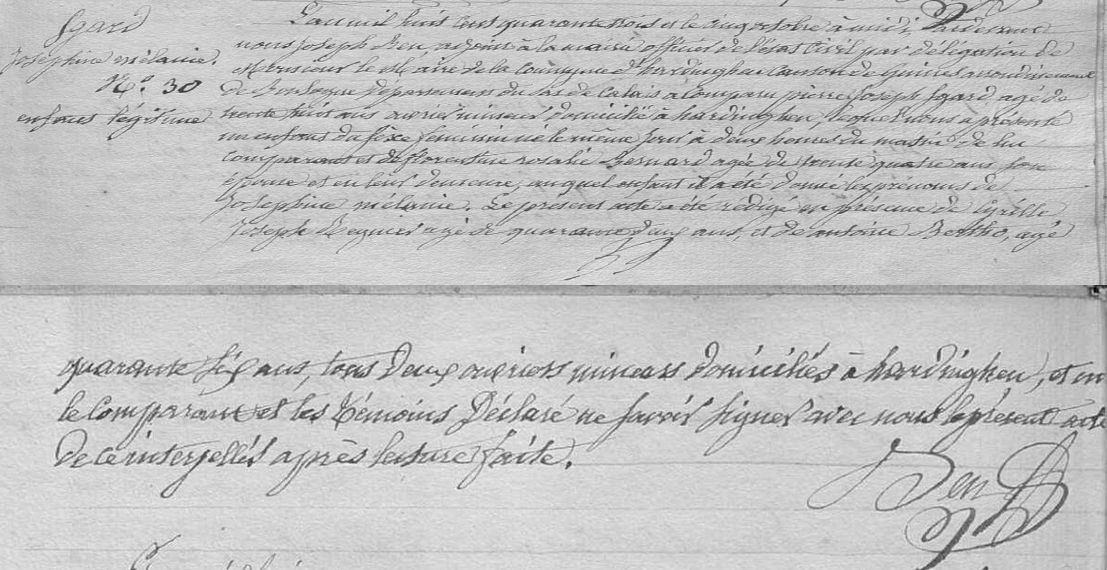 Sgard
Joséphine mélanie.
N.o 30
enfant légitime
L'an mil huit cent quarante trois et le cinq octobre à midi, Pardevant
nous Joseph Ben, adjoint à la mairie officier de l'état Civil par délégation de
Monsieur le Maire de la commune d'hardinghen canton de Guines arrondissement
de Boulogne département du Pas de Calais a comparu pierre Joseph Sgard, agé de
trente huit ans ouvrier mineur domicilié à hardinghen, lequel nous a présenté
un enfant du sexe féminin né le même jour à deux heures du matin de lui
comparant et de florentine rosalie Bernard agée de trente quatre ans son
épouse et en leur demeure, auquel enfant il a été donné les prénoms de
Joséphine mélanie. Le présent acte a été rédigé en présence de Cyrille
Joseph Regnier agé de quarante deux ans, et de antoine Bertho, agé
quarante six ans, tous deux ouvriers mineurs domiciliés à hardinghen, et on
le comparant et les témoins Déclaré ne savoir signer avec nous le présent acte
de ce interpellés après lecture faite.
J Ben